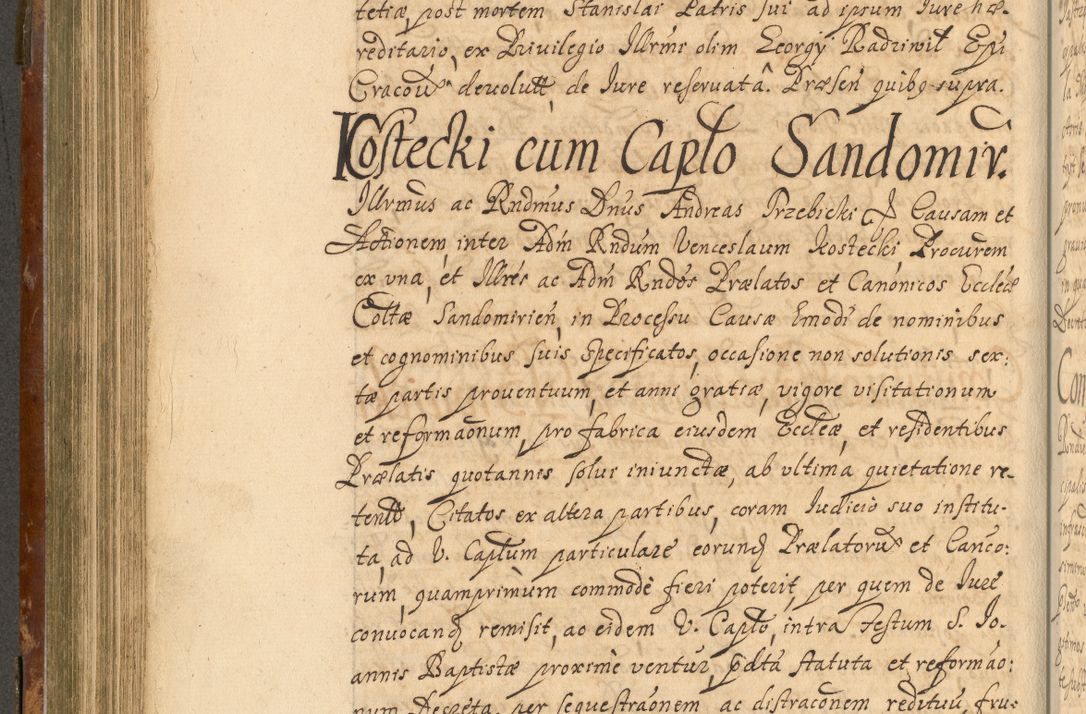 tetiæ post mortem Stanislai Patris sui ad ipsum Iure hæ-
reditario, ex Privilegio Illrmi olim Georgy Radziwil Epi
Cracou devolutt, de Iure reservatâ. Præsen quibq supra.
Kostecki cum Caplo Sandomir.
Illrmus ac Rndmus Dnus Andreas Trzebicki Causam et
Actionem inter Adm Rndum Venceslaum Kostecki, Procurem
ex una, et Illres ac Adm Rndos Prælatos et Canonicos Eccleæ
Collæ Sandomirien, in Processu Causæ Emodi de nominibus
et cognominibus suis specificatos, occasione non solutionis sex:
tæ partis proventuum, et anni gratiæ, vigore visitationum
et reformaonum, pro fabrica eiusdem Eccleæ, et residentibus
Prælatis quotannis solui iniunctæ, ab ultima quietatione re-
tentt, Citatos ex altera partibus, coram Iudicio suo institu-
ta, ad V. Caplum particulare eorund Prælatoru et Canco:
rum, quamprimum commodè fieri poterit, per quem de Iure
convocand remisit, ac eidem V. Caplo, intra Festum S. Io-
annis Baptistæ proxime ventur, pdta statuta et reformao:
num Decreta, per sequestraonem ac distraconem redituu fru-